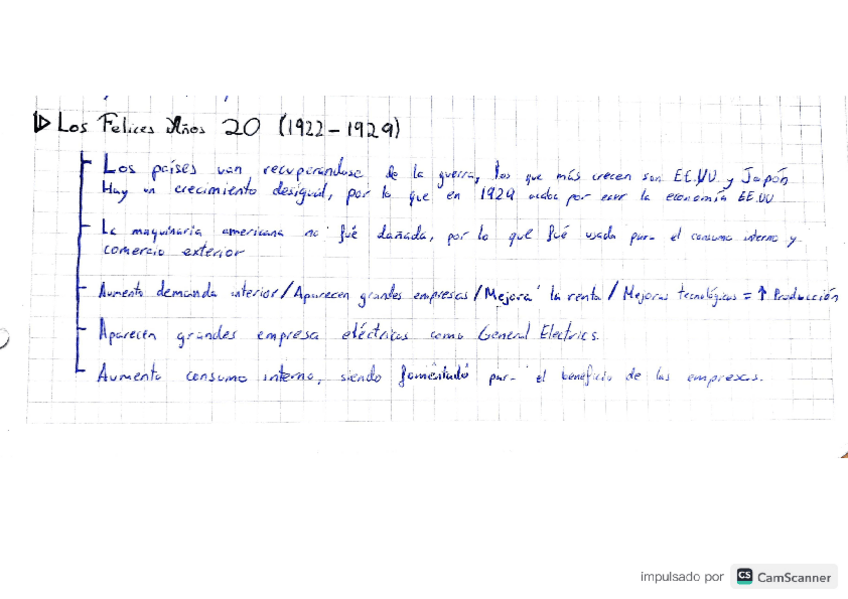 Los Felices Años 20 (1922-1929)
Los países van recuperándose de la guerra, los que más crecen son EE.UU. y Japón
Hay un crecimiento desigual, por lo que en 1929 acaba por caer la economía EE.UU
La maquinaria americana no fué dañada, por lo que fué usada para el consumo interno y
comercio exterior
Aumento demanda interior/Aparecen grandes empresas/Mejora la renta/Mejoras tecnológicas = ↑ Producción
Aparecen grandes empresa eléctricas como General Electrics.
Aumento consumo interno, siendo fomentado para el beneficio de las empresas.
impulsado por CS CamScanner